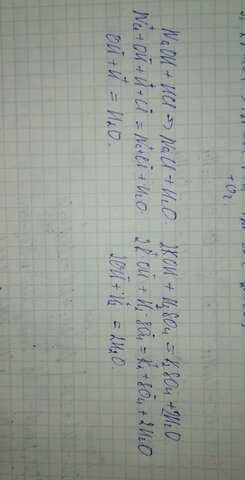 +O₂
NaOH + HCl => NaCl + H₂O
Na + OH + H + Cl = Na + Cl + H₂O
OH + H = H₂O.
2KOH + H₂SO₄ = K₂SO₄ + 2H₂O
2K OH + H₂ SO₄ = K₂ + SO₄ + 2H₂O
2OH + H₂ = 2H₂O